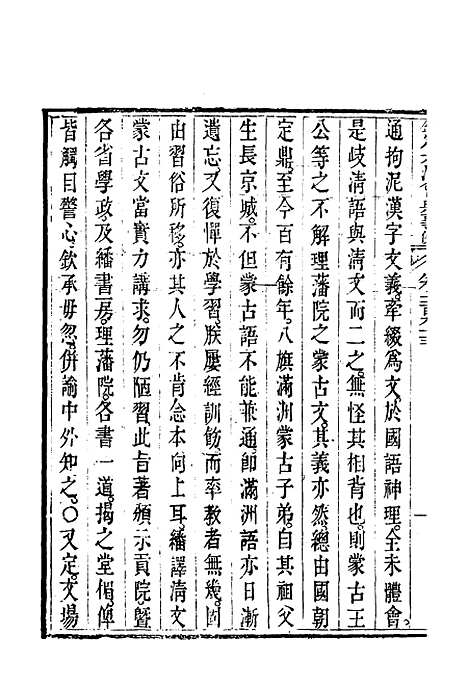 通拘泥漢字文義。牽綴為文。於國語神理。全未體會。
是歧清語與清文而二之。無怪其相背也。即蒙古王
公等之不解理藩院之蒙古文。其義亦然。總由國朝
定鼎。至今百有餘年。八旗滿洲蒙古子弟。自其祖父
生長京城。不但蒙古語不能兼通。即滿洲語亦日漸
遺忘。又復憚於學習。朕屢經訓飭。而率教者無幾。固
由習俗所移。亦其人之不肯念本向上耳。繙譯清文
蒙古文當實力講求。勿仍陋習。此旨著頒示貢院。暨
各省學政。及繙書房。理藩院。各書一道。揭之堂楣。俾
皆觸目警心。欽承毋忽。併諭中外知之。○又定。文場